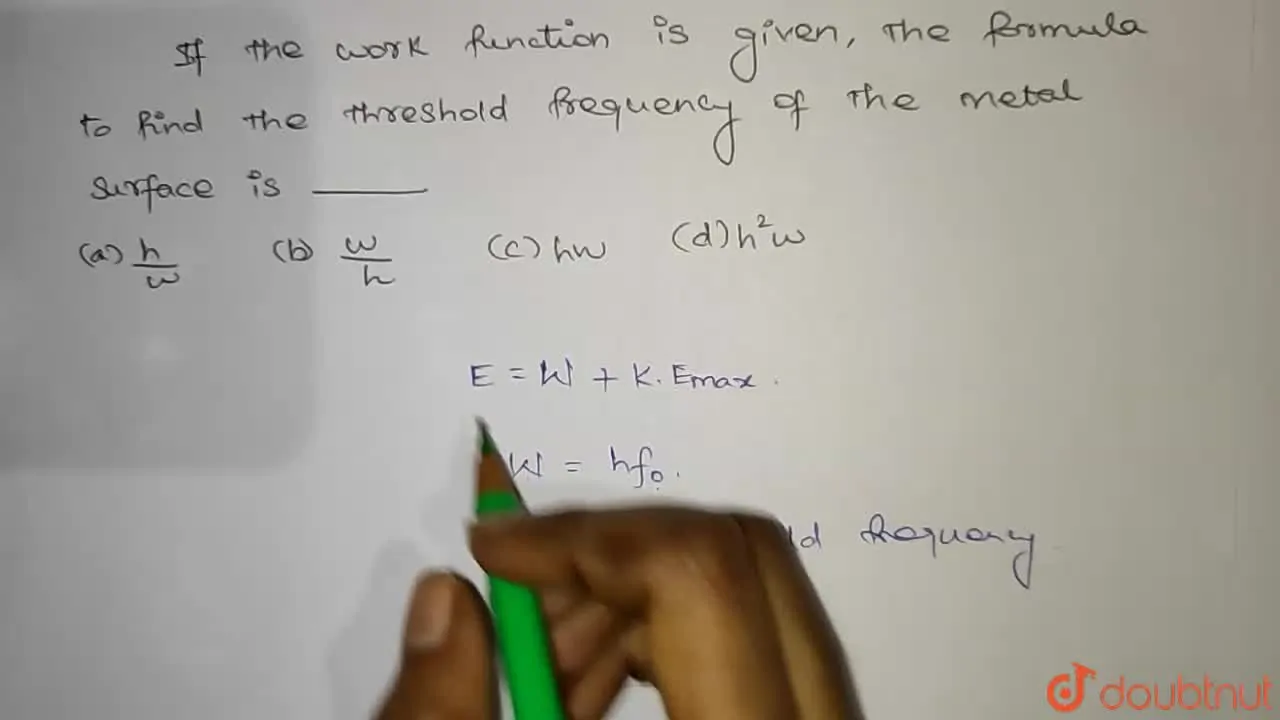 If the work function is given, the formula
to find the threshold frequency of the metal
surface is ———
(a) h/w (b) w/h (c) hw (d) h²w
E = W + K.Emax.
W = hf₀.
frequency
doubtnut